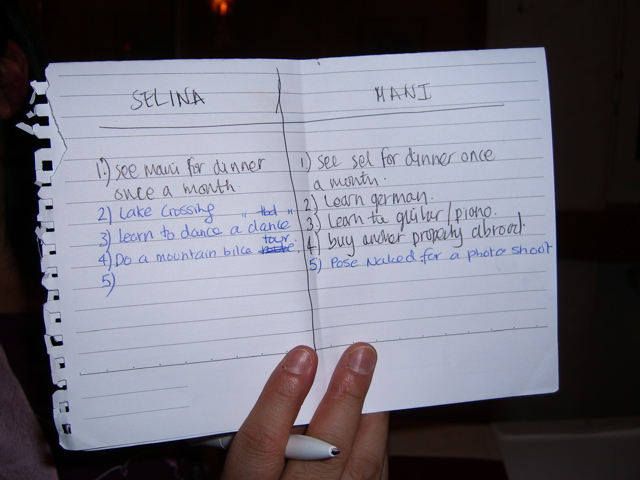 SELINA
1.) see Mani for dinner
once a month.
2) Lake Crossing
3) learn to dance a "tbd" dance
4) Do a mountain bike tour
5)
MANI
1) see sel for dinner once
a month.
2) Learn german.
3) Learn the guitar/piano.
4) buy another property abroad.
5) Pose Naked for a photo shoot